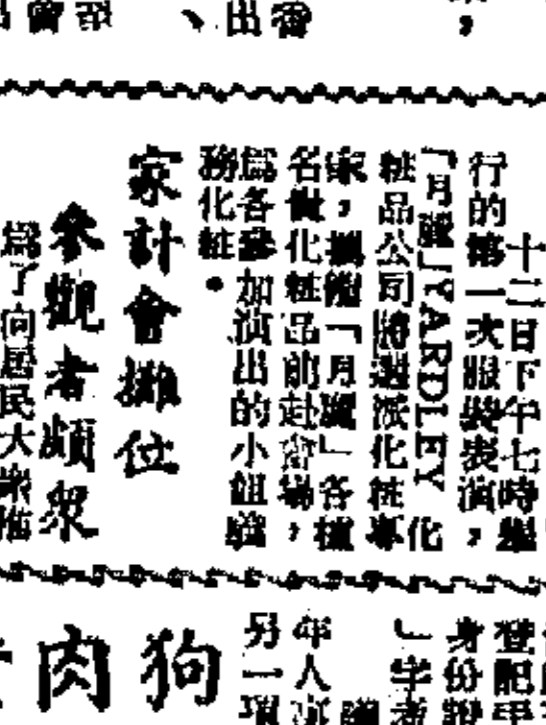 十二日下午七時舉
行的第一次服裝表演，
「月麗」YARDLEY 化
粧品公司將選派化粧專
家，攜備「月麗」各種
名貴化粧品前赴會場，
爲各參加演出的小組職
務化粧。
家計會攤位
參觀者頗衆
爲了向居民大衆推
登記
身份證
」字者
年人
另一項
狗肉